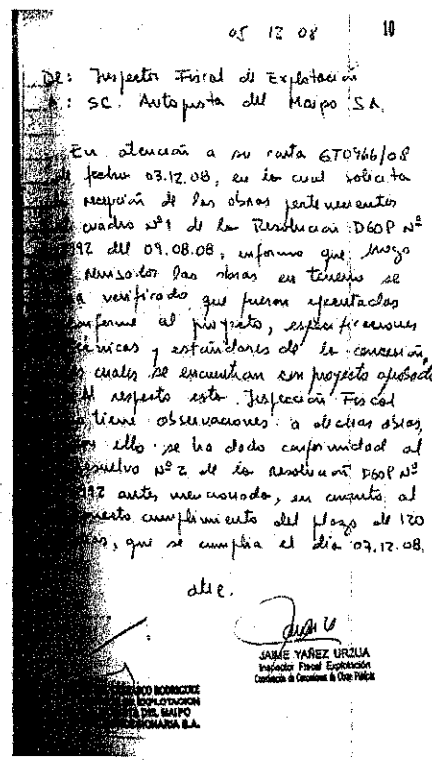 05 12 08 10
De: Inspector Fiscal de Explotación
A: SC. Autopista del Maipo S.A.
En atención a su carta GTO966/08
fecha 03.12.08, en la cual solicita
recepción de las obras pertenecientes
cuadro Nº1 de la Resolución DGOP Nº
192 del 09.08.08, informo que, luego
revisados las obras en terreno se
verificado que fueron ejecutadas
conforme al proyecto, especificaciones
técnicas y estándares de la concesión,
cuales se encuentran con proyecto aprobado
Al respecto esta Inspección Fiscal
tiene observaciones a dichas obras,
ello se ha dado conformidad al
resuelvo Nº2 de la Resolución DGOP Nº
192 antes mencionado, en cuanto al
cumplimiento del plazo de 120
que se cumplía el día 07.12.08.
atte.
JAIME YAÑEZ URZUA
Inspector Fiscal Explotación
Coordinación de Concesiones de Obras Públicas
RODRIGUEZ
DE EXPLOTACION
DEL MAIPO
S.A.